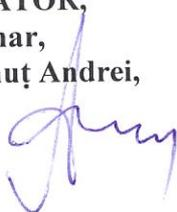 ATOR,
nar,
uț Andrei,